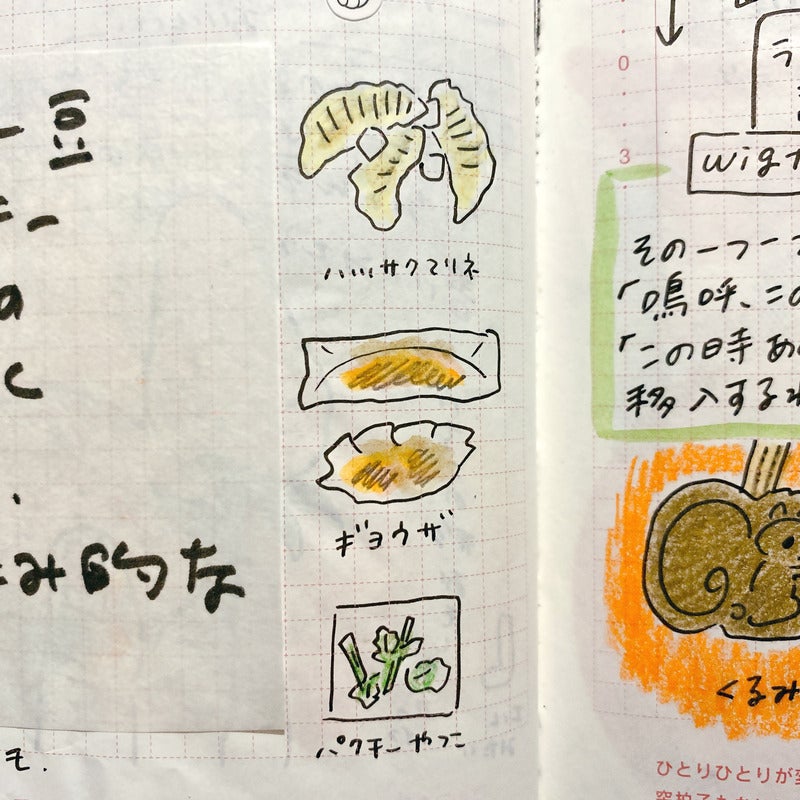 豆
a
く
み的な
そ.
ハッサクマリネ
ギョウザ
パクチーやっこ
0
3
ラ
wigh
その一つ一つ
「嗚呼、この
「この時あ
移入するオ
くるみ
ひとりひとりが